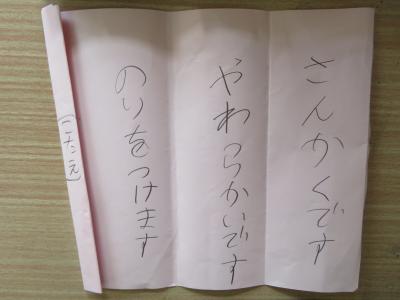 さんかくです
やわらかいです
のりをつけます
(こたえ)